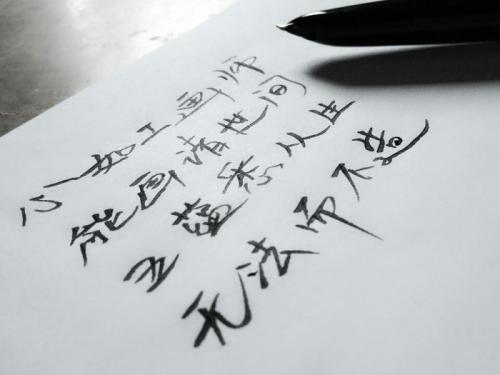 心如工画师
能画诸世间
五蕴悉从生
无法师不造